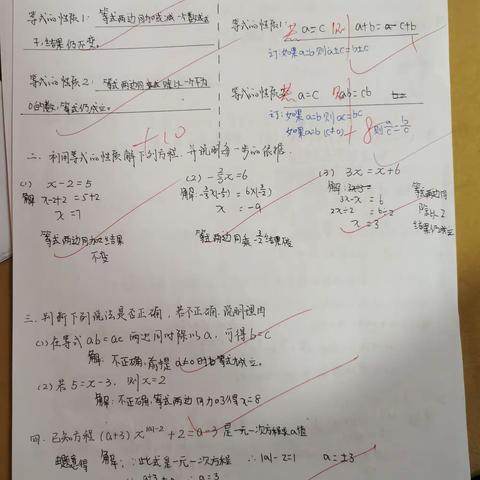 等式的性质1: 等式两边同加或减一个数或式
子,结果仍不变。
等式的性质2: 等式两边同乘或除以一个不为
0的数,等式仍成立。
等式的性质1: 若 a=c 则 a+b=c+b
订:如果a=b则a±c=b±c
等式的性质 若 a=c 则ab=cb
订:如果a=b则ac=bc
如果a=b(c≠0) 则a/c=b/c
+10
+8
二、利用等式的性质解下列方程,并说明每一步的依据.
(1) x-2=5
解 x-2+2=5+2
x=7
等式两边同加2结果
不变
(2) -2/3x=6
解:-2/3x×(-3/2)=6×(-3/2)
x=-9
等式两边同乘-3/2结果
(3) 3x=x+6
解:
3x-x=6
2x÷2=6÷2
x=3
等式两边同
除以2
结果仍成立
三.判断下列说法是否正确,若不正确,说明理由
(1)在等式ab=ac两边同时除以a,可得b=c
解:不正确,前提a≠0时等式成立。
(2)若5=x-3,则x=2
解:不正确,等式两边同加3得x=8
四.已知方程(a+3)x|a|-2+2=a-3是一元一次方程求a值
由题意得 解:∵此式是一元一次方程 ∴|a|-2=1 a=±3
a+3≠0 ∴a=3